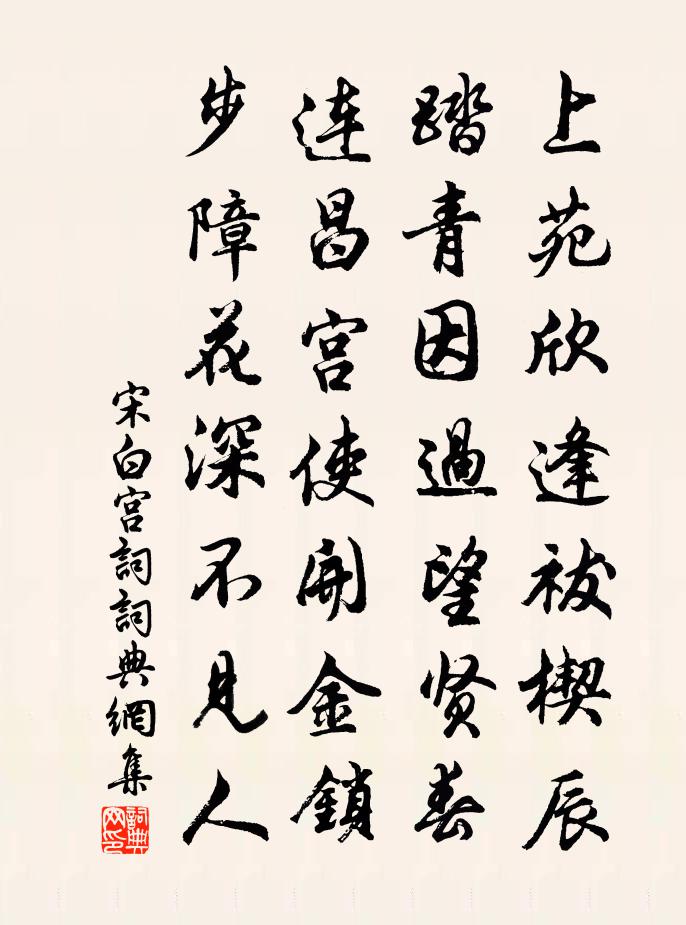 上苑欣逢祓楔辰
踏青因過望贤春
连昌宫使開金鎖
步障花深不見人
宋白宫詞詞典網集
詞典網印